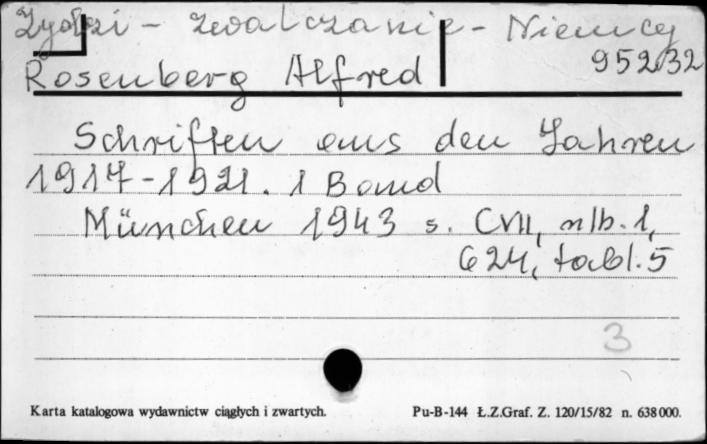 Żydzi - zwalczanie - Niemcy
95232
Rosenberg Alfred
Schriften aus den Jahren
1917-1921. 1 Band
München 1943 s. CVII, nlb. 1,
624, tabl. 5
3
Karta katalogowa wydawnictw ciągłych i zwartych. Pu-B-144 Ł.Z.Graf. Z. 120/15/82 n. 638000.